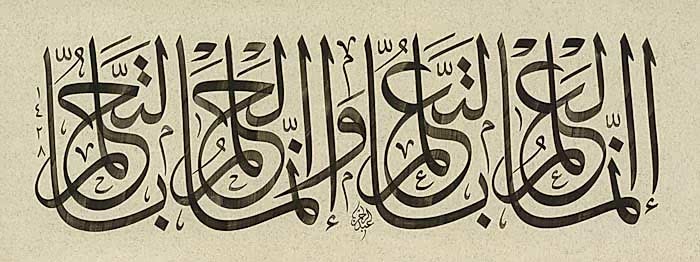 إنما العلم بالتعلم وإنما الحلم بالتحلم
١٤٢٨